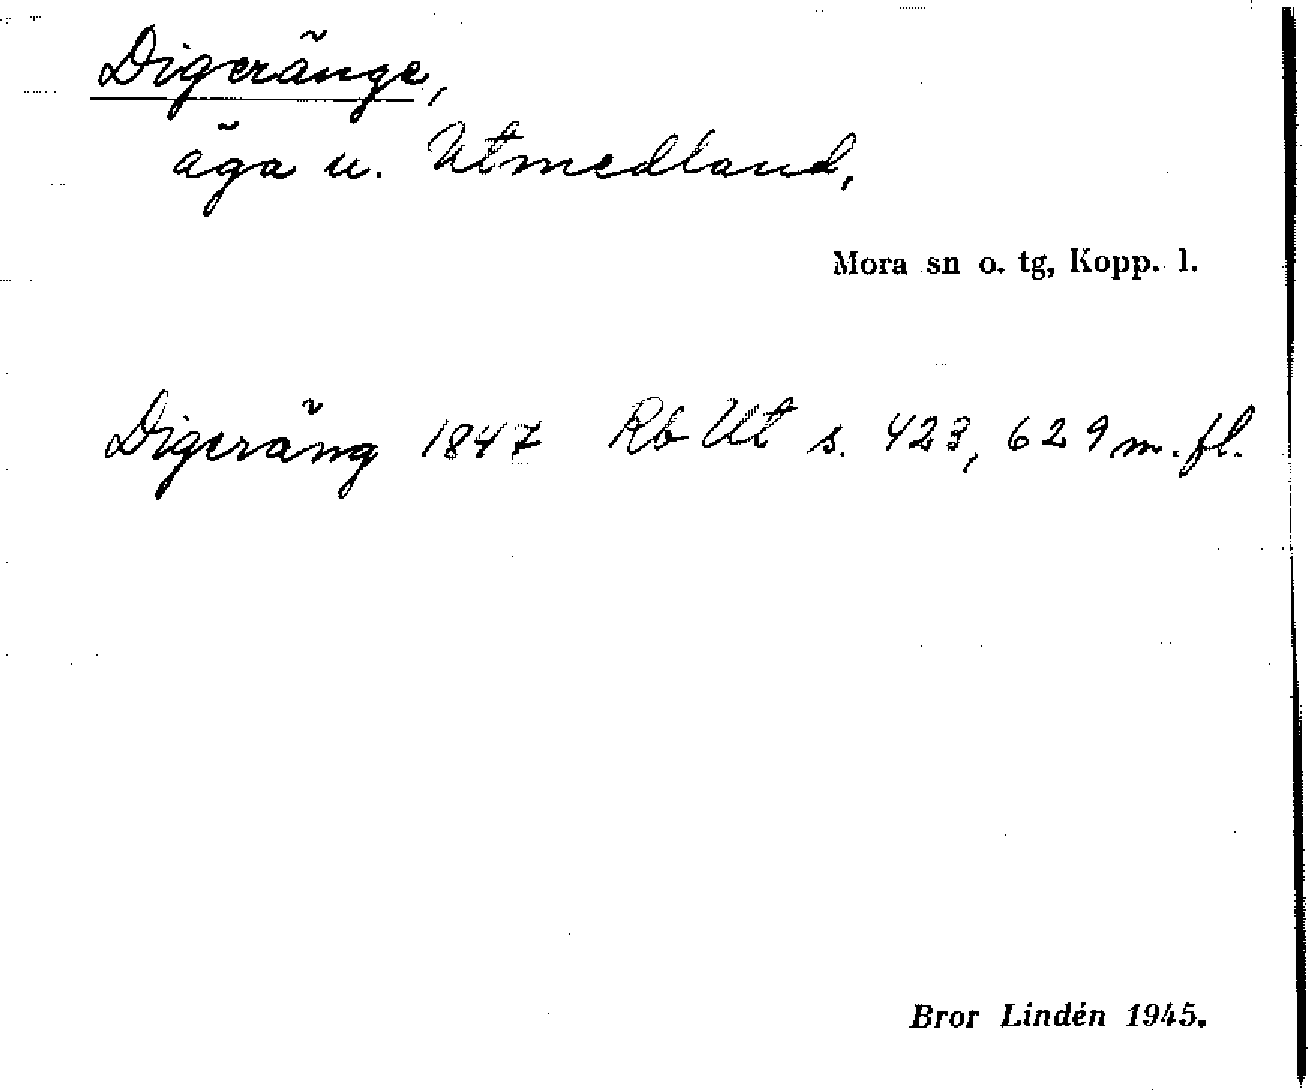 Digeränge,
äga u. Utmedland,
Mora sn o. tg, Kopp. l.
Digeräng 1847 Rb Ut s. 423, 629 m. fl.
Bror Lindén 1945.